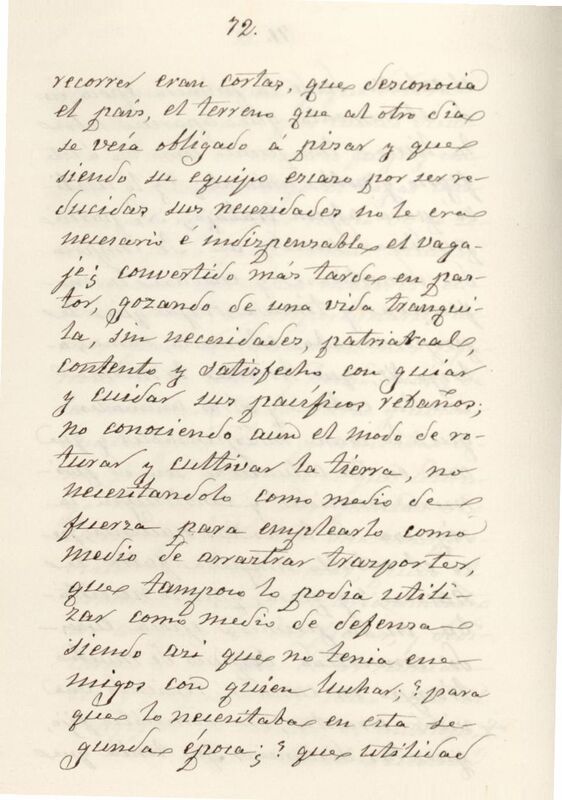 72.
recorrer eran cortas, que desconocia
el país, el terreno que al otro dia
se veía obligado á pisar y que
siendo su equipo escaso por ser re-
ducidas sus necesidades no le era
necesario é indispensable el vaga-
je; convertido más tarde en pas-
tor, gozando de una vida tranqui-
la, sin necesidades, patriarcal,
contento y satisfecho con guiar
y cuidar sus pacíficos rebaños;
no conociendo aun el modo de ro-
turar y cultivar la tierra, no
necesitandolo como medio de
fuerza para emplearlo como
medio de arrastrar trasportes,
que tampoco lo podia utili-
zar como medio de defensa
siendo asi que no tenia ene-
migos con quien luchar; ? para
que lo necesitaba en esta se-
gunda época; ? que utilidad